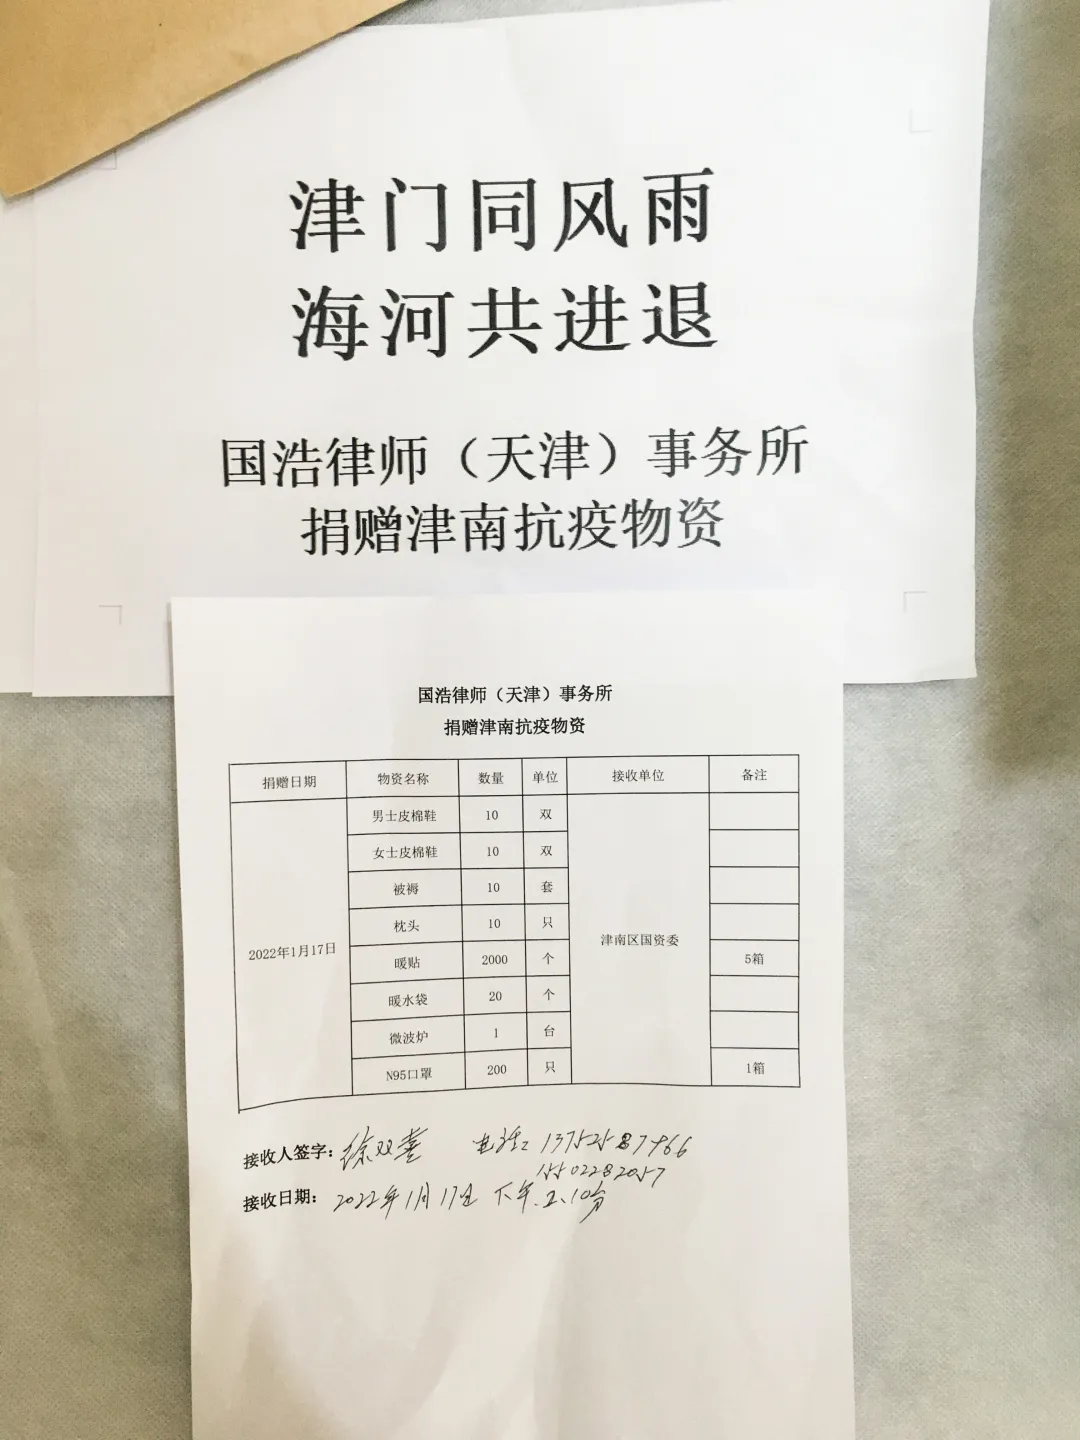 津门同风雨
海河共进退
国浩律师（天津）事务所
捐赠津南抗疫物资
国浩律师（天津）事务所
捐赠津南抗疫物资
捐赠日期 物资名称 数量 单位 接收单位 备注
男士皮棉鞋 10 双
女士皮棉鞋 10 双
被褥 10 套
枕头 10 只
2022年1月17日 津南区国资委
暖贴 2000 个 5箱
暖水袋 20 个
微波炉 1 台
N95口罩 200 只 1箱
接收人签字：徐双喜 电话：
15502282057
接收日期：2022年1月17日 下午 10分